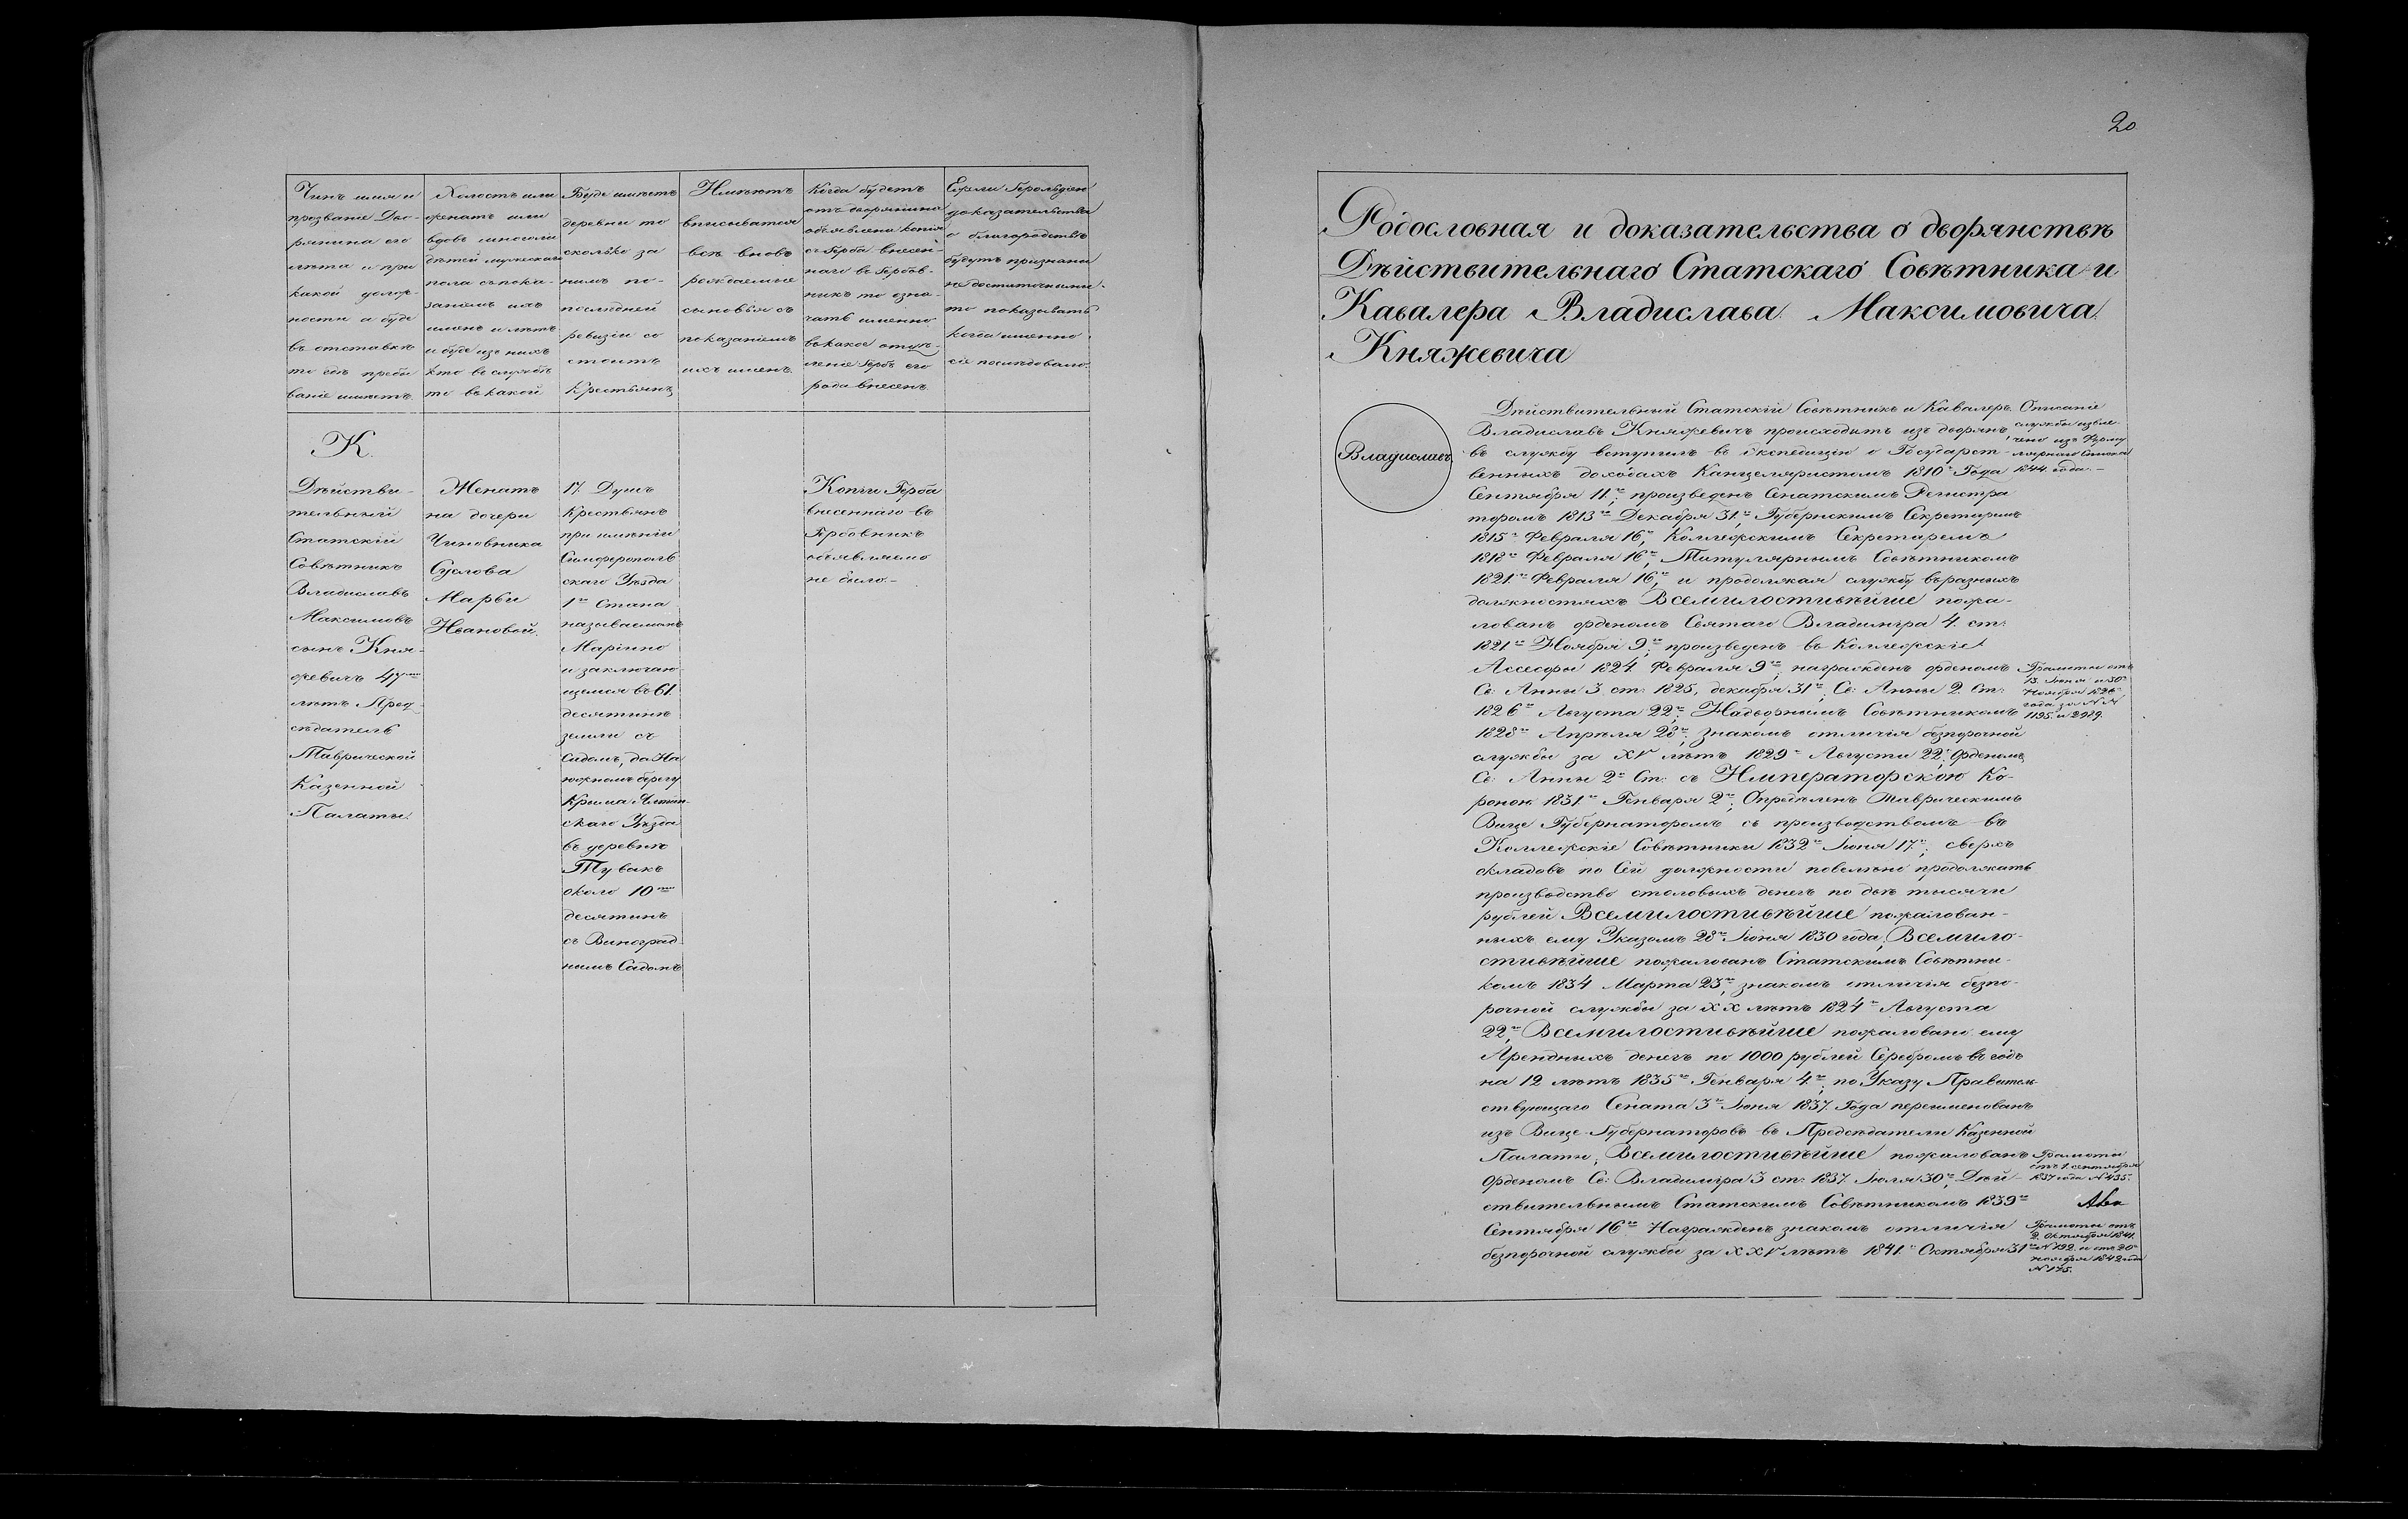 Чинъ имя и
прозваніе Дво-
рянина его
лѣта и при
какой долж-
ности а буде
въ отставкѣ
то гдѣ пребы
ваніе имѣетъ.
Холостъ или
женатъ или
вдовъ имѣетъ ли
дѣтей мужескаго
пола съ пока-
заніемъ ихъ
именъ и лѣтъ
и буде изъ нихъ
кто въ службѣ
то въ какой
Буде имѣетъ
деревни то
сколько за
нимъ по-
последней
ревизіи со
стоитъ
Крестьянъ
Имѣютъ
вписыватся
всѣ вновь
рождаемые
сыновья съ
показаніемъ
ихъ именъ.
Когда будетъ
отъ дворянина
объявлена копія
съ Герба внесен-
наго въ Гербов-
никъ то озна-
чать именно
въ какое отдѣ-
леніе Гербъ его
рода внесенъ
Ежели Герольдіею
доказательства
о благородствѣ
будутъ признаны
недостаточными
то показывать
когда именно
сіе послѣдовало.
К.
Дѣйстви-
тельный
Статскій
Совѣтникъ
Владиславъ
Максимовъ
сынъ Кня-
жевичъ 47ми
лѣтъ Пред-
сѣдатель
Таврической
Казенной
Палаты.
Женатъ
на дочери
Чиновника
Суслова
Марьи
Ивановой.
17. Душъ
Крестьянъ
при имѣніи
Симферополь
скаго Уѣзда
1го Стана
называемомъ
Маріино
и заключаю-
щемся въ 61.
десятинѣ
земли съ
Садомъ, да На
южномъ берегу
Крыма Ялтин-
скаго Уѣзда
въ деревнѣ
Тувакъ
около 10ти
десятинъ
съ Виноград-
нымъ Садомъ
Копіи Герба
внесеннаго въ
Гербовникъ
объявляемо
не было.-
20
Родословная и доказательства о дворянствѣ
Дѣйствительнаго Статскаго Совѣтника и
Кавалера Владислава Максимовича
Княжевича
Владиславъ
Дѣйствительный Статскій Совѣтникъ и Кавалеръ
Владиславъ Княжевичъ происходитъ изъ дворянъ,
въ службу вступилъ въ Экспедицію о Государст-
венныхъ доходахъ Канцеляристомъ 1810го Года
Сентября 11го, произведенъ Сенатскимъ Регистра
торомъ 1813го Декабря 31го, Губернскимъ Секретаремъ
1815го Февраля 16го, Коллежскимъ Секретаремъ
1818го Февраля 16го, Титулярнымъ Совѣтникомъ
1821го Февраля 16го, и продолжая службу въ разныхъ
должностяхъ Всемилостивѣйше пожа-
лованъ орденомъ Святаго Владиміра 4. ст:
1821го Ноября 9го, произведенъ въ Коллежскіе
Ассесоры 1824 Февраля 9го, награжденъ орденомъ
Св: Анны 3 ст: 1825, декабря 31го, Св: Анны 2. Ст:
1826го Августа 22го, Надворнымъ Совѣтникомъ
1828го Апрѣля 28го, Знакомъ отличія безпорочной
службы за XV лѣтъ 1829го Августа 22го, Орденомъ
Св: Анны 2й Ст: съ Императорскою Ко-
роною 1831го Генваря 2го, Опредѣленъ Таврическимъ
Вице Губернаторомъ съ производствомъ въ
Коллежскіе Совѣтники 1832го Іюня 17го, сверхъ
окладовъ по Сей должности повелѣно продолжать
производство столовыхъ денегъ по двѣ тысячи
рублей Всемилостивѣйше пожалован-
ныхъ ему Указомъ 28го Іюня 1830 года, Всемило-
стивѣйше пожалованъ Статскимъ Совѣтни-
комъ 1834 Марта 23го, знакомъ отличія безпо-
рочной службы за XX лѣтъ 1824го Августа
22го, Всемилостивѣйше пожаловано ему
Арендныхъ денегъ по 1000 рублей Серебромъ въ годъ
на 12 лѣтъ 1835го Генваря 4го, по Указу Правитель
ствующаго Сената 3го Іюня 1837. Года переименованъ
изъ Вице-Губернаторовъ въ Предсѣдатели Казенной
Палаты, Всемилостивѣйше пожалованъ
Орденомъ Св: Владиміра 3 ст: 1837. Іюля 30го, Дѣй-
ствительнымъ Статскимъ Совѣтникомъ 1839го
Сентября 16го Награжденъ знакомъ отличія
безпорочной службы за XXV лѣтъ 1841го Октября 31го
Описаніе
службы извле-
чено изъ Форму
лярнаго Списка
1844 года.-
Грамоты отъ
13. Іюня и 30го
Ноября 1826го
года за N N
1195. и 2989.
Грамоты
отъ 1. сентября
1837 года N 435.
Грамоты отъ
2. Октября 1841.
N 192. и отъ 20го
ноября 1842 года
N 175.